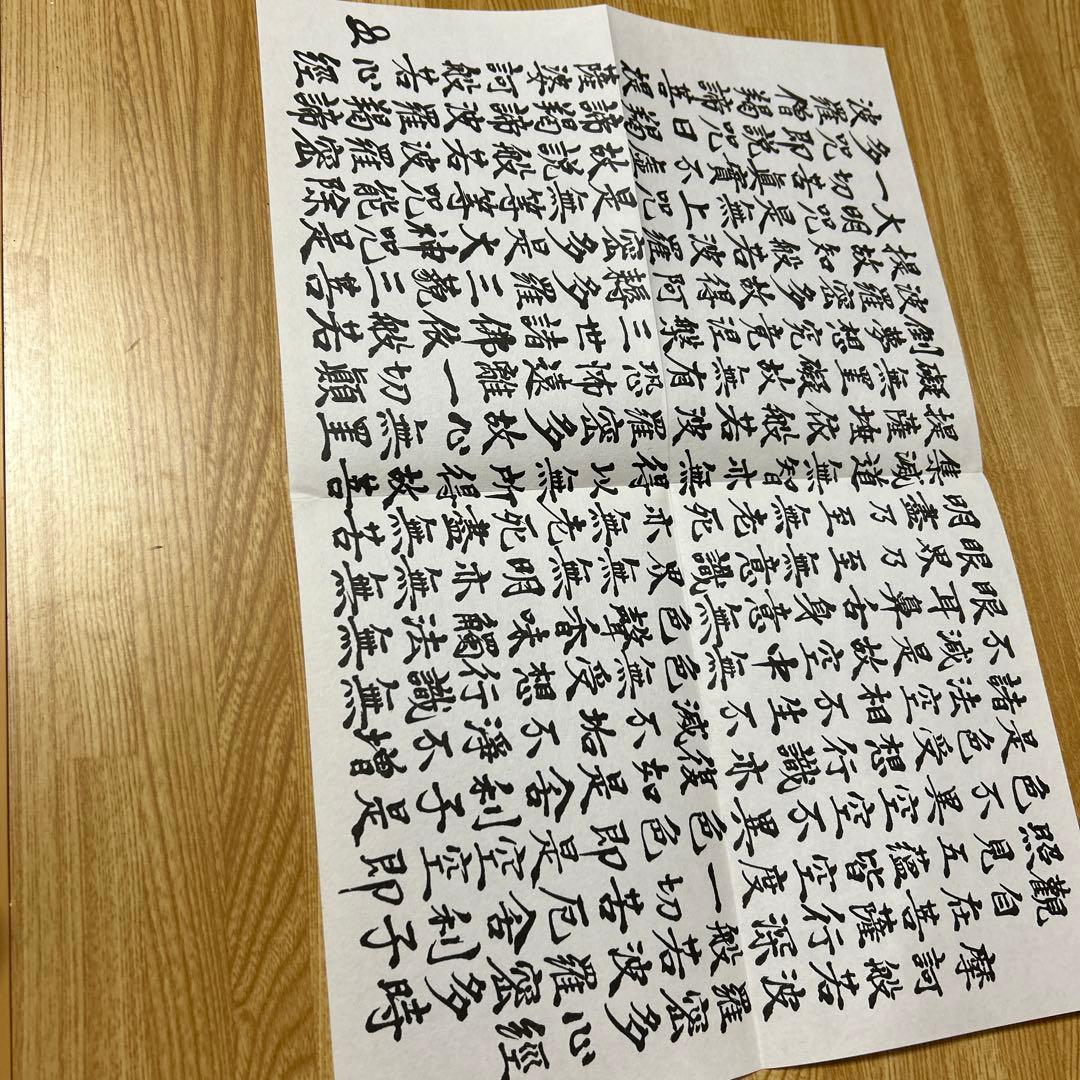 摩訶般若波羅密多心經
觀自在菩薩行深般若波羅密多時
照見五蘊皆空度一切苦厄舍利子
色不異空空不異色色即是空空即
是色受想行識亦復如是舍利子是
諸法空相不生不滅不垢不淨不增
不減是故空中無色無受想行識無
眼耳鼻舌身意無色聲香味觸法無
眼界乃至無意識界無無明亦無無
明盡乃至無老死亦無老死盡無苦
集滅道無智亦無得以無所得故菩
提薩埵依般若波羅密多故心無罣
礙無罣礙故無有恐怖遠離一切顛
倒夢想究竟涅槃三世諸佛依般若
波羅密多故得阿耨多羅三藐三菩
提故知般若波羅密多是大神咒是
大明咒是無上咒是無等等咒能除
一切苦眞實不虛故説般若波羅密
多咒即説咒曰羯諦羯諦波羅羯諦
波羅僧羯諦菩提薩婆訶般若心經